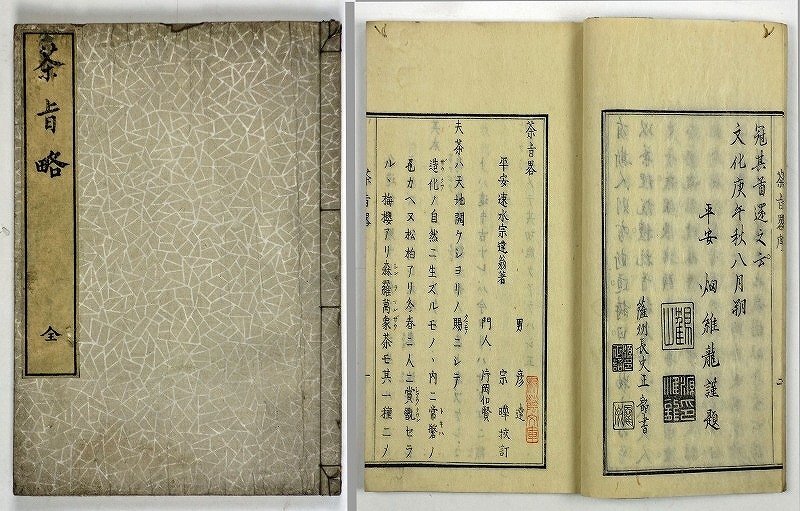 茶旨略
全
茶旨略序
冠其首還之云
文化庚午秋八月朔
平安 畑維龍謹題
茶旨略
平安速水宗達翁著
男 彦達
門人 宗曄校訂
片岡和賢
夫茶ハ天地開ケシヨリノ賜ニシテ
造化ノ自然ニ生ズルモノヽ内ニ常磐ノ
色カヘヌ松柏アリ冬春ニ人ニ賞翫セラ
ルヽ梅櫻アリ森羅萬象茶モ其一種ニノ
茶旨略